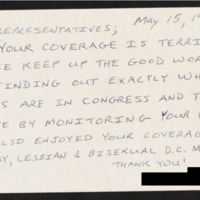 REPRESENTATIVES; May 15, 19
YOUR COVERAGE IS TERRI
KEEP UP THE GOOD WOR
FINDING OUT EXACTLY WH
S ARE IN CONGRESS AND T
E BY MONITORING YOUR
ALSO ENJOYED YOUR COVERAG
Y, LESBIAN & BISEXUAL D.C. M
THANK YOU!